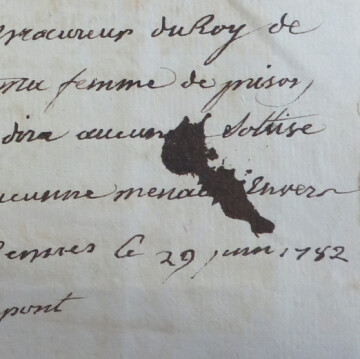 procureur du Roy de
ma femme de prison
dira aucune sottise
aucunne menace Envers
Rennes le 29 juin 1782
pont